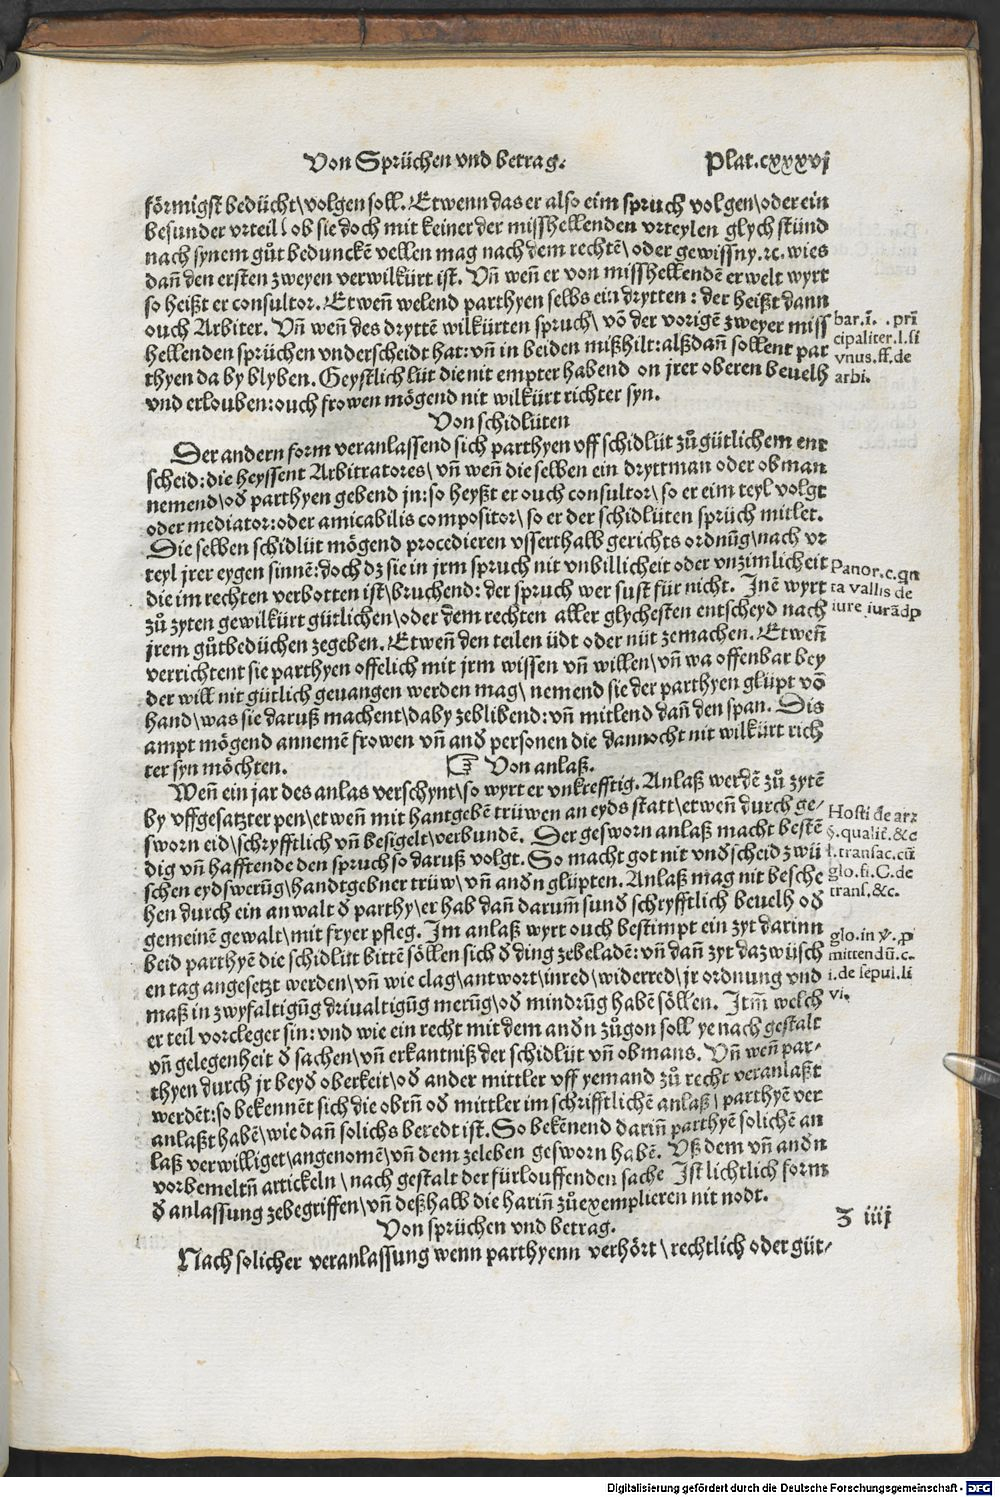 Von Sprüchen vnd betrag.
Plat.cxxxvj
förmigst bedücht\volgen soll. Etwenn das er also eim spruch volgen\oder ein
besunder vrteil\ob sie doch mit keiner der misshellenden vrteylen glych stünd
nach synem gůt bedunckē vellen mag nach dem rechtē\oder gewissny.ꝛc. wies
dañ den ersten zweyen verwilkürt ist. Vñ weñ er von misshellendē erwelt wyrt
so heißt er consultor. Etweñ welend parthyen selbs ein drytten: der heißt dann
ouch Arbiter. Vñ weñ des dryttē wilkürten spruch\ vō der vorigē zweyer miss
hellenden sprüchen vnderscheidt hat: vñ in beiden mißhilt: alßdañ sollent par
thyen da by blyben. Geystlich lüt die nit empter habend on jrer oberen beuelh
vnd erlouben: ouch frowen mögend nit wilkürt richter syn.
bar.ī. . prī
cipaliter.l.si
vnus.ff.de
arbi.
Von schidlüten
Der andern form veranlassend sich parthyen vff schidlüt zů gütlichem ent
scheid: die heyssent Arbitratores\ vñ weñ die selben ein dryttman oder obman
nemend\oð parthyen gebend jn: so heyßt er ouch consultor\ so er eim teyl volgt
oder mediator: oder amicabilis compositor\ so er der schidlüten sprüch mitlet.
Die selben schidlüt mögend procedieren vsserthalb gerichts ordnūg\nach vr
teyl jrer eygen sinnē: doch dz sie in jrm spruch nit vnbillicheit oder vnzimlicheit
die im rechten verbotten ist\bruchend: der spruch wer sust für nicht. Jnē wyrt
zů zyten gewilkürt gütlichen\oder dem rechten aller glychesten entscheyd nach
jrem gůtbedüchen zegeben. Etweñ den teilen üdt oder nüt zemachen. Etweñ
verrichtent sie parthyen offelich mit jrm wissen vñ willen\vñ wa offenbar bey
der will nit gütlich geuangen werden mag\ nemend sie der parthyen glüpt vō
hand\was sie daruß machent\daby zeblibend: vñ mitlend dañ den span. Dis
ampt mögend annemē frowen vñ anð personen die dannocht nit wilkürt rich
ter syn möchten.
Panor.c.qn
ta vallis de
iure iurādꝑ
☞ Von anlaß.
Weñ ein jar des anlas verschynt\so wyrt er vnkrefftig. Anlaß werdē zů zytē
by vffgesatzter pen\etweñ mit hantgebē trüwen an eyds statt\etweñ durch ge-
sworn eid\schryfftlich vñ besigelt\verbundē. Der gesworn anlaß macht bestē
dig vñ hafftende den spruch so daruß volgt. So macht got nit vnðscheid zwü
schen eydswerūg\handtgebner trüw\ vñ anðn glüpten. Anlaß mag nit besche
hen durch ein anwalt ð parthy\er hab dañ darum̄ sund schryfftlich beuelh oð
gemeinē gewalt\mit fryer pfleg. Jm anlaß wyrt ouch bestimpt ein zyt darinn
beid parthyē die schidlüt bittē söllen sich ð ding zebeladē: vñ dañ zyt dazwüsch
en tag angesetzt werden\vñ wie clag\antwort\inred\widerred\jr ordnung vnd
maß in zwyfaltigūg driualtigūg merūg\oð mindrūg habē söllen. Jtm̄ welch
er teil vorcleger sin: vnd wie ein recht mit dem anðn zůgon soll ye nach gestalt
vñ gelegenheit ð sachen\vñ erkantniß der schidlüt vñ obmans. Vñ weñ par-
thyen durch jr beyð oberkeit\oð ander mittler vff yemand zů recht veranlaßt
werdēt: so bekennēt sich die obrñ oð mittler im schrifftlichē anlaß\ parthyē ver
anlaßt habē\wie dañ solichs beredt ist. So bekēnend dariñ parthyē solichē an
laß verwilliget\angenomē\vñ dem zeleben gesworn habē. Vß dem vñ anðn
vorbemeltñ artickeln\ nach gestalt der fürlouffenden sache Jst lichtlich form
ð anlassung zebegriffen\vñ deßhalb die hariñ zůexemplieren nit nodt.
Hosti de arꝛ
§.qualit̄.&c
l.transac.cū
glo.fi.C.de
trans.&c.
glo.in ℣.ꝓ
mittendū.c.
i.de sepul.li
vi.
Von sprüchen vnd betrag.
Nach solicher veranlassung wenn parthyenn verhört\rechtlich oder güt-
Z iiij
Digitalisierung gefördert durch die Deutsche Forschungsgemeinschaft - DFG